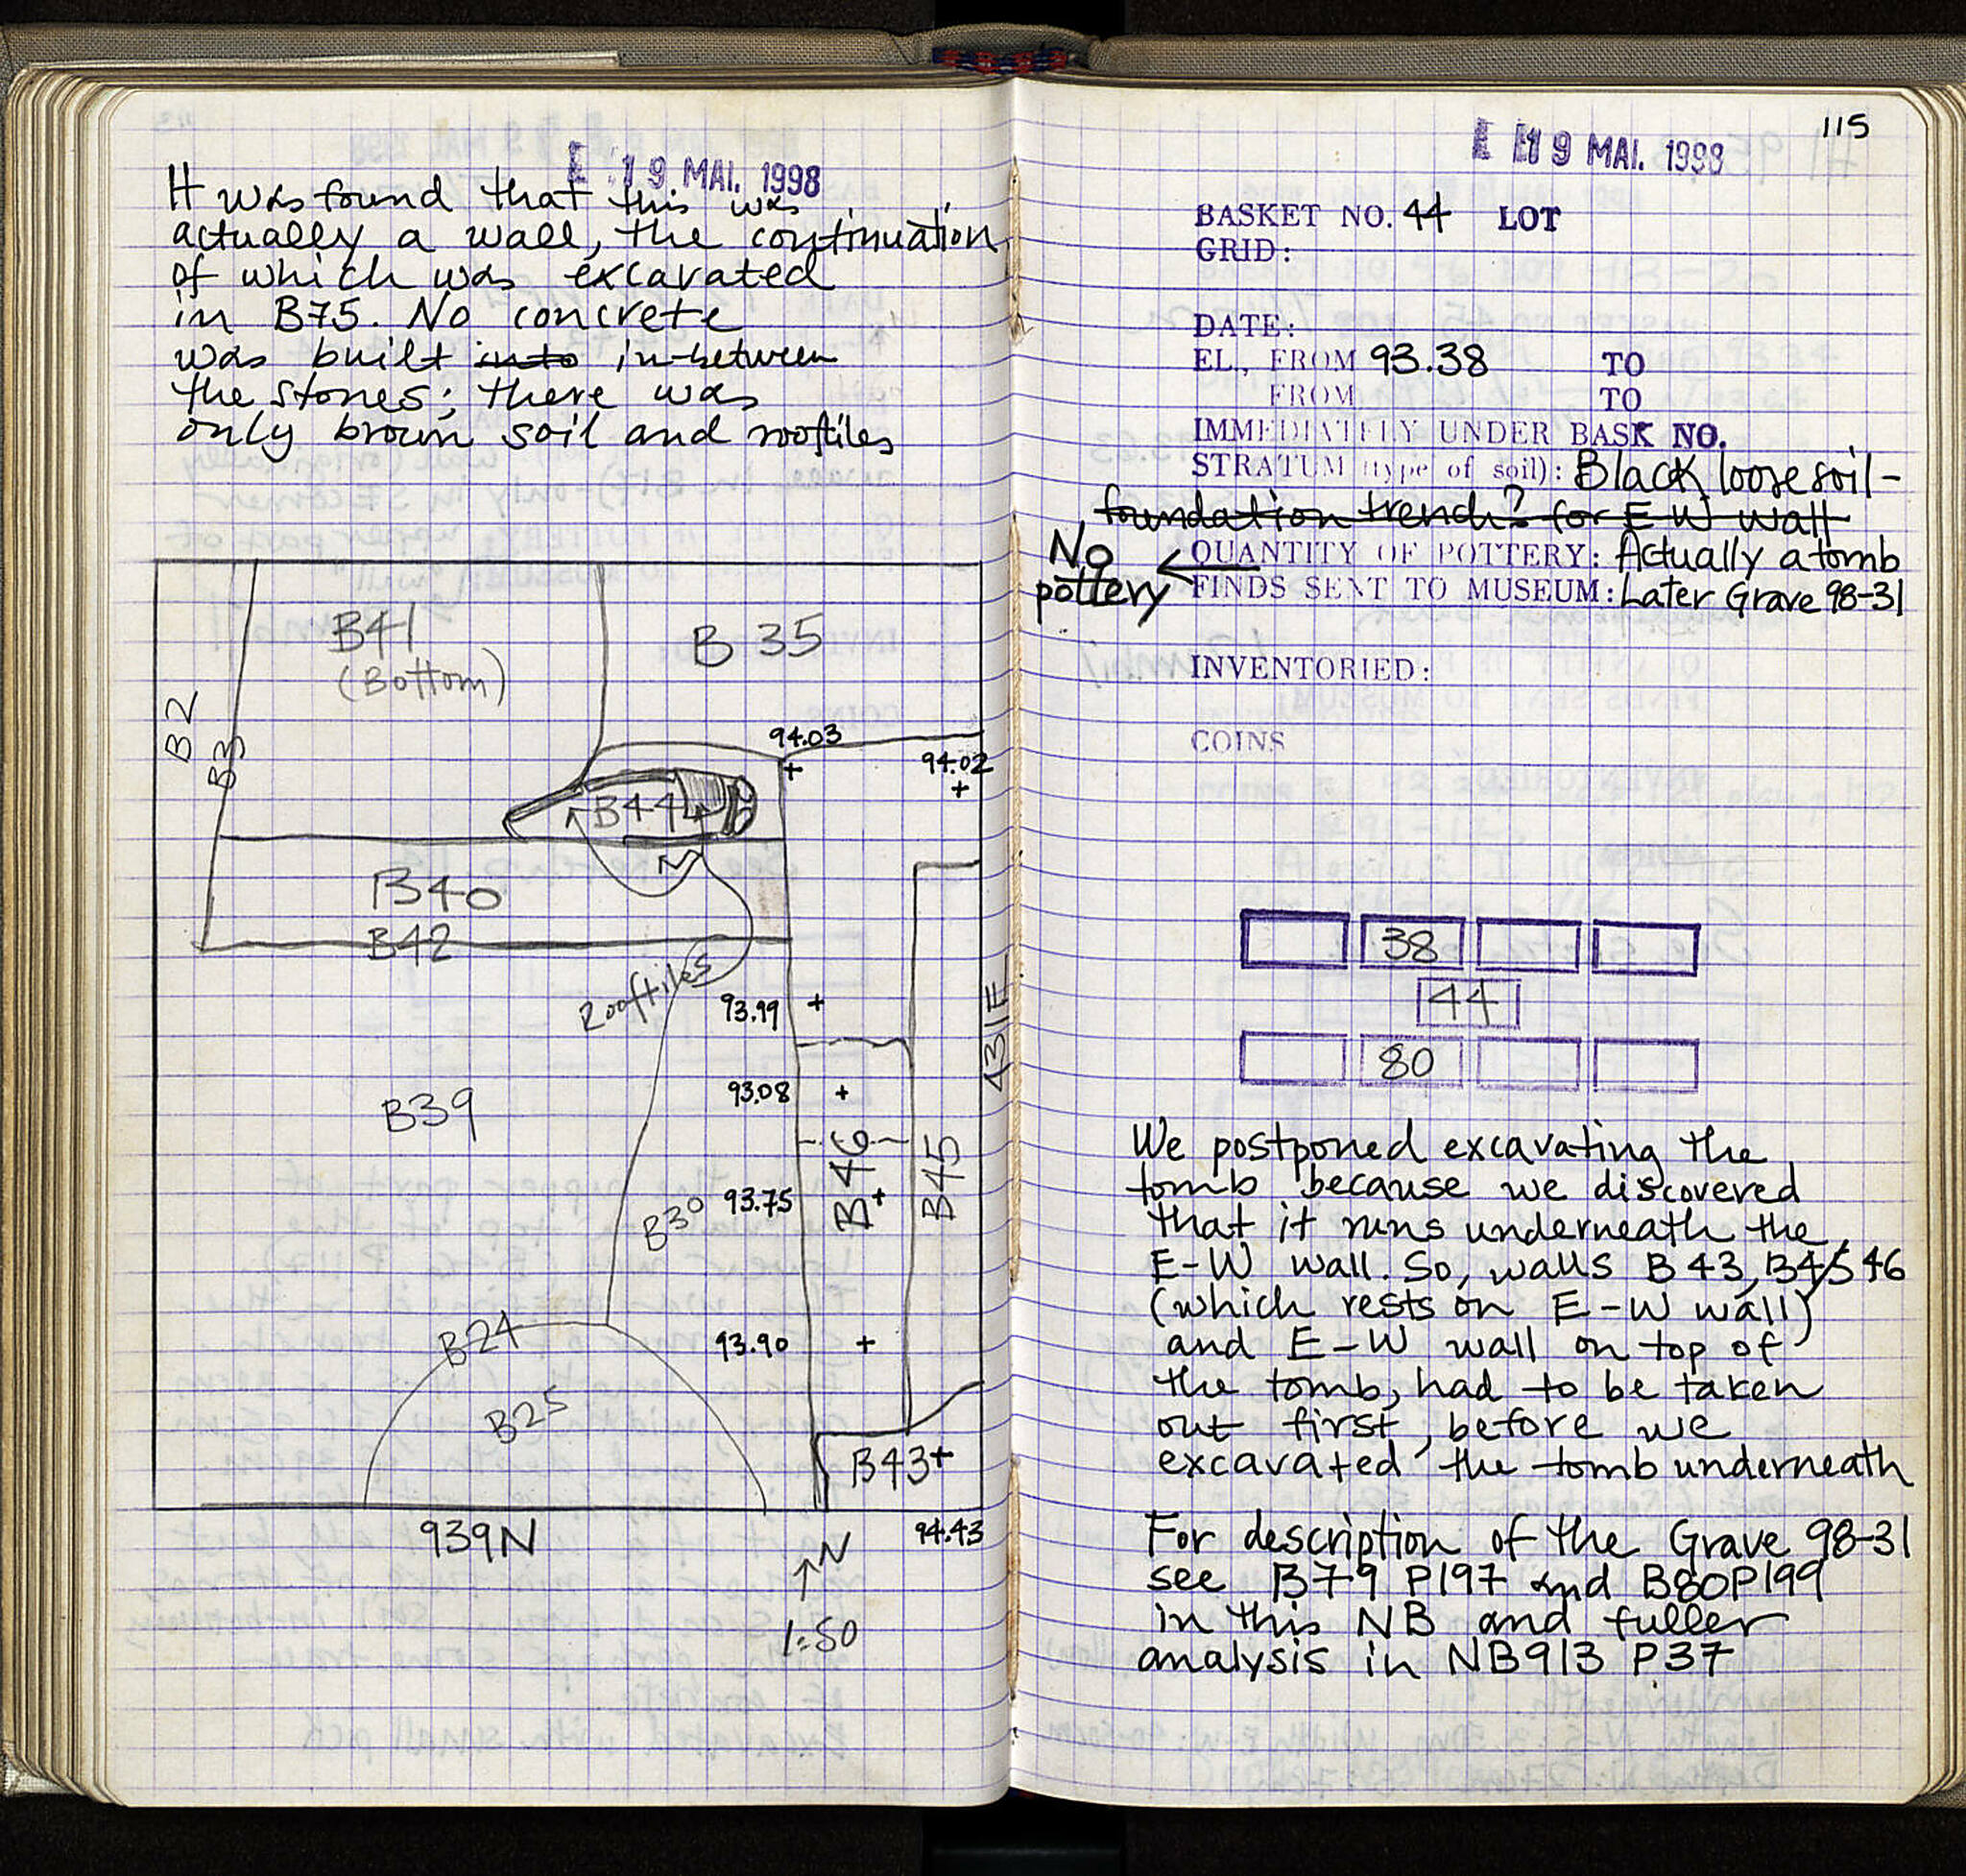 19. MAI. 1998
It was found that this was
actually a wall, the continuation
of which was excavated
in B75. No concrete
was built into in-between
the stones; there was
only brown soil and rooftiles
B41
(Bottom)
B 35
B2
B3
94.03
94.02
B44
B40
B42
Rooftiles
93.99
431E
B39
93.08
B46
B45
B30
93.75
B24
93.90
B25
B43
939N
94.43
N
1:50
115
19 MAI. 1998
BASKET NO. 44 LOT
GRID:
DATE:
EL., FROM 93.38 TO
FROM TO
IMMEDIATELY UNDER BASK NO.
STRATUM (type of soil): Black loose soil -
foundation trench? for E-W wall
No
pottery
QUANTITY OF POTTERY: Actually a tomb
FINDS SENT TO MUSEUM: Later Grave 98-31
INVENTORIED:
COINS
38
44
80
We postponed excavating the
tomb because we discovered
that it runs underneath the
E-W wall. So, walls B43, B45 46
(which rests on E-W wall)
and E-W wall on top of
the tomb, had to be taken
out first, before we
excavated the tomb underneath
For description of the Grave 98-31
see B79 P197 and B80P199
in this NB and fuller
analysis in NB913 P37